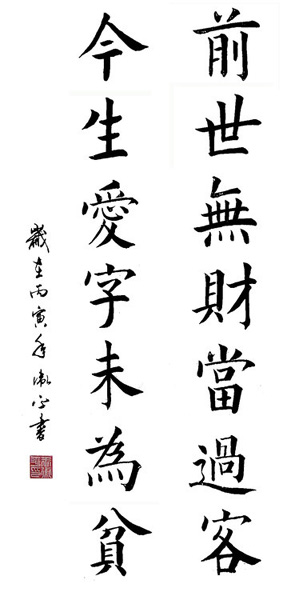 前世無財當過客
今生愛字未為貧
歲在丙寅年
書